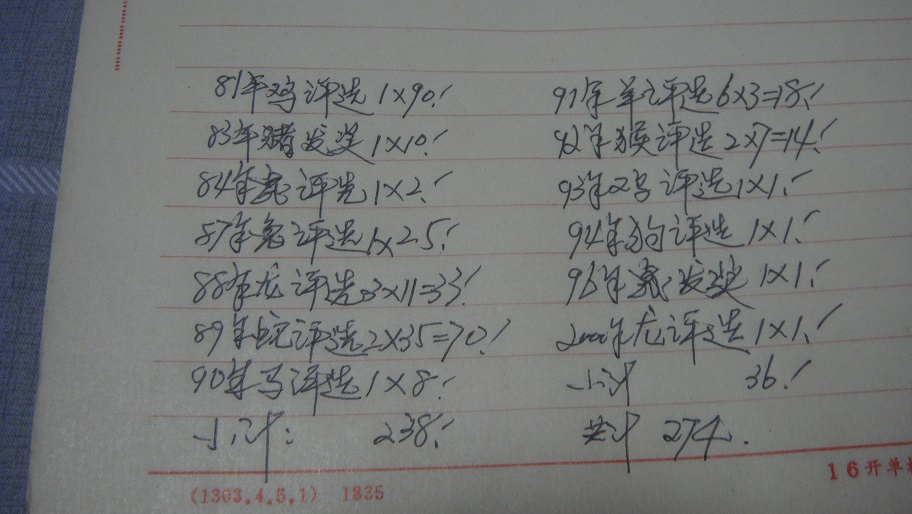 81年鸡评选 1×90.
83年猪发奖 1×10.
84年鼠评选 1×2.
87年兔评选 1×25.
88年龙评选 3×11=33
89年蛇评选 2×35=70.
90年马评选 1×8.
小计: 238.
91年羊评选 6×3=18.
92年猴评选 2×7=14.
93年鸡评选 1×1.
94年狗评选 1×1.
96年鼠发奖 1×1.
2000年龙评选 1×1.
小计 36.
共计 274.
(1303.4.5.1) 1835
16开单